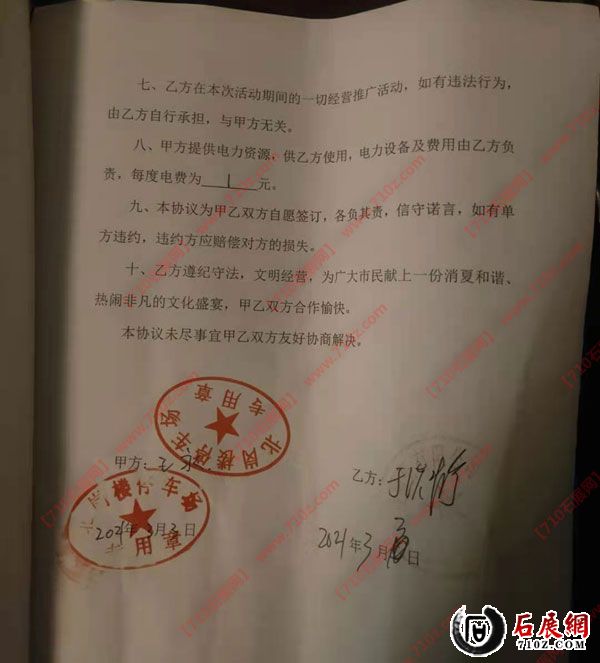 七、乙方在本次活动期间的一切经营推广活动，如有违法行为，
由乙方自行承担，与甲方无关。
八、甲方提供电力资源，供乙方使用，电力设备及费用由乙方负
责，每度电费为 1 元。
九、本协议为甲乙双方自愿签订，各负其责，信守诺言，如有单
方违约，违约方应赔偿对方的损失。
十、乙方遵纪守法，文明经营，为广大市民献上一份消夏和谐、
热闹非凡的文化盛宴，甲乙双方合作愉快。
本协议未尽事宜甲乙双方友好协商解决。
北岗楼停车场
专用章
甲方：
乙方：
楼停车场
用章
2021年3月3日
2021年3月 日
【710石展网】www.710z.com
石展網
710Z.COM